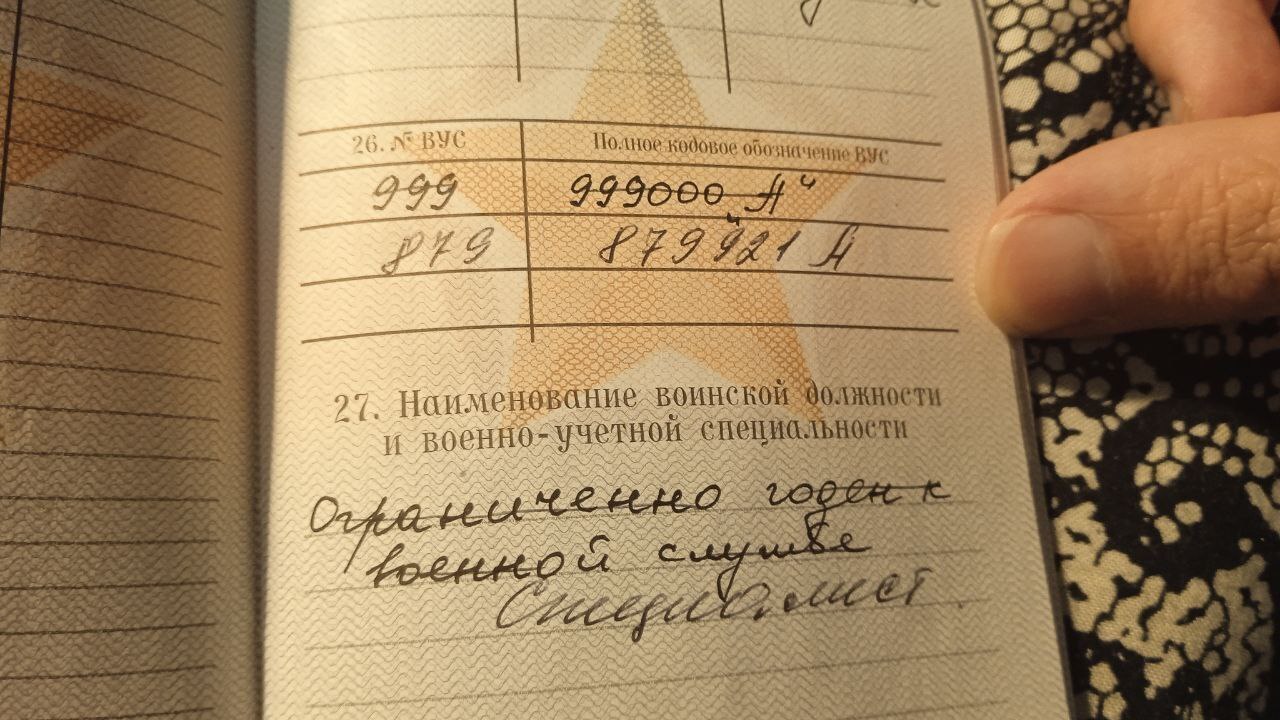 26. № ВУС Полное кодовое обозначение ВУС
999 999000 А"
879 879921 А
27. Наименование воинской должности
и военно-учетной специальности
Ограниченно годен к
военной службе
Специалист